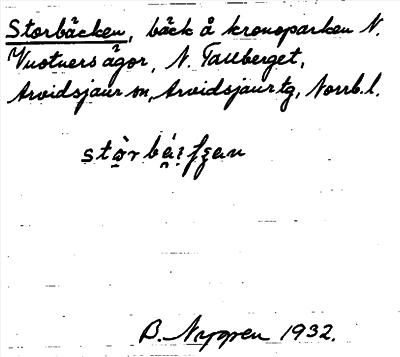 Storbäcken, bäck å kronoparken N.
Vuotners ägor, N. Tallberget,
Arvidsjaur sn, Arvidsjaur tg, Norrb. l.
B. Nygren 1932.